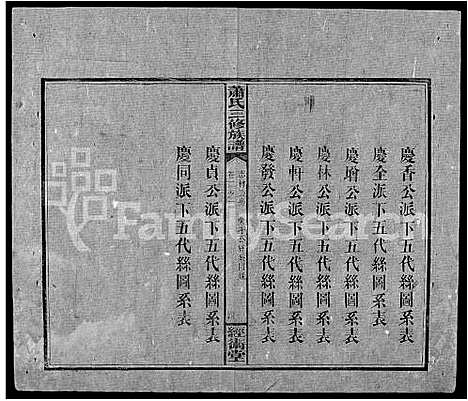 慶香公派下五代絲圖系表
慶全派下五代絲圖系表
慶增公派下五代絲圖系表
慶林公派下五代絲圖系表
慶軒公派下五代絲圖系表
慶發公派下五代絲圖系表
蕭氏三修族譜
經術堂
慶貞公派下五代絲圖系表
慶同派下五代絲圖系表
FamilySearch